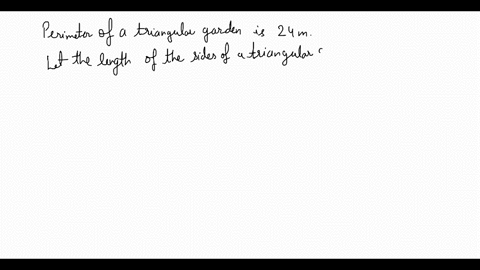 Perimeter of a triangular garden is 24m.
Let the length of the sides of a triangular